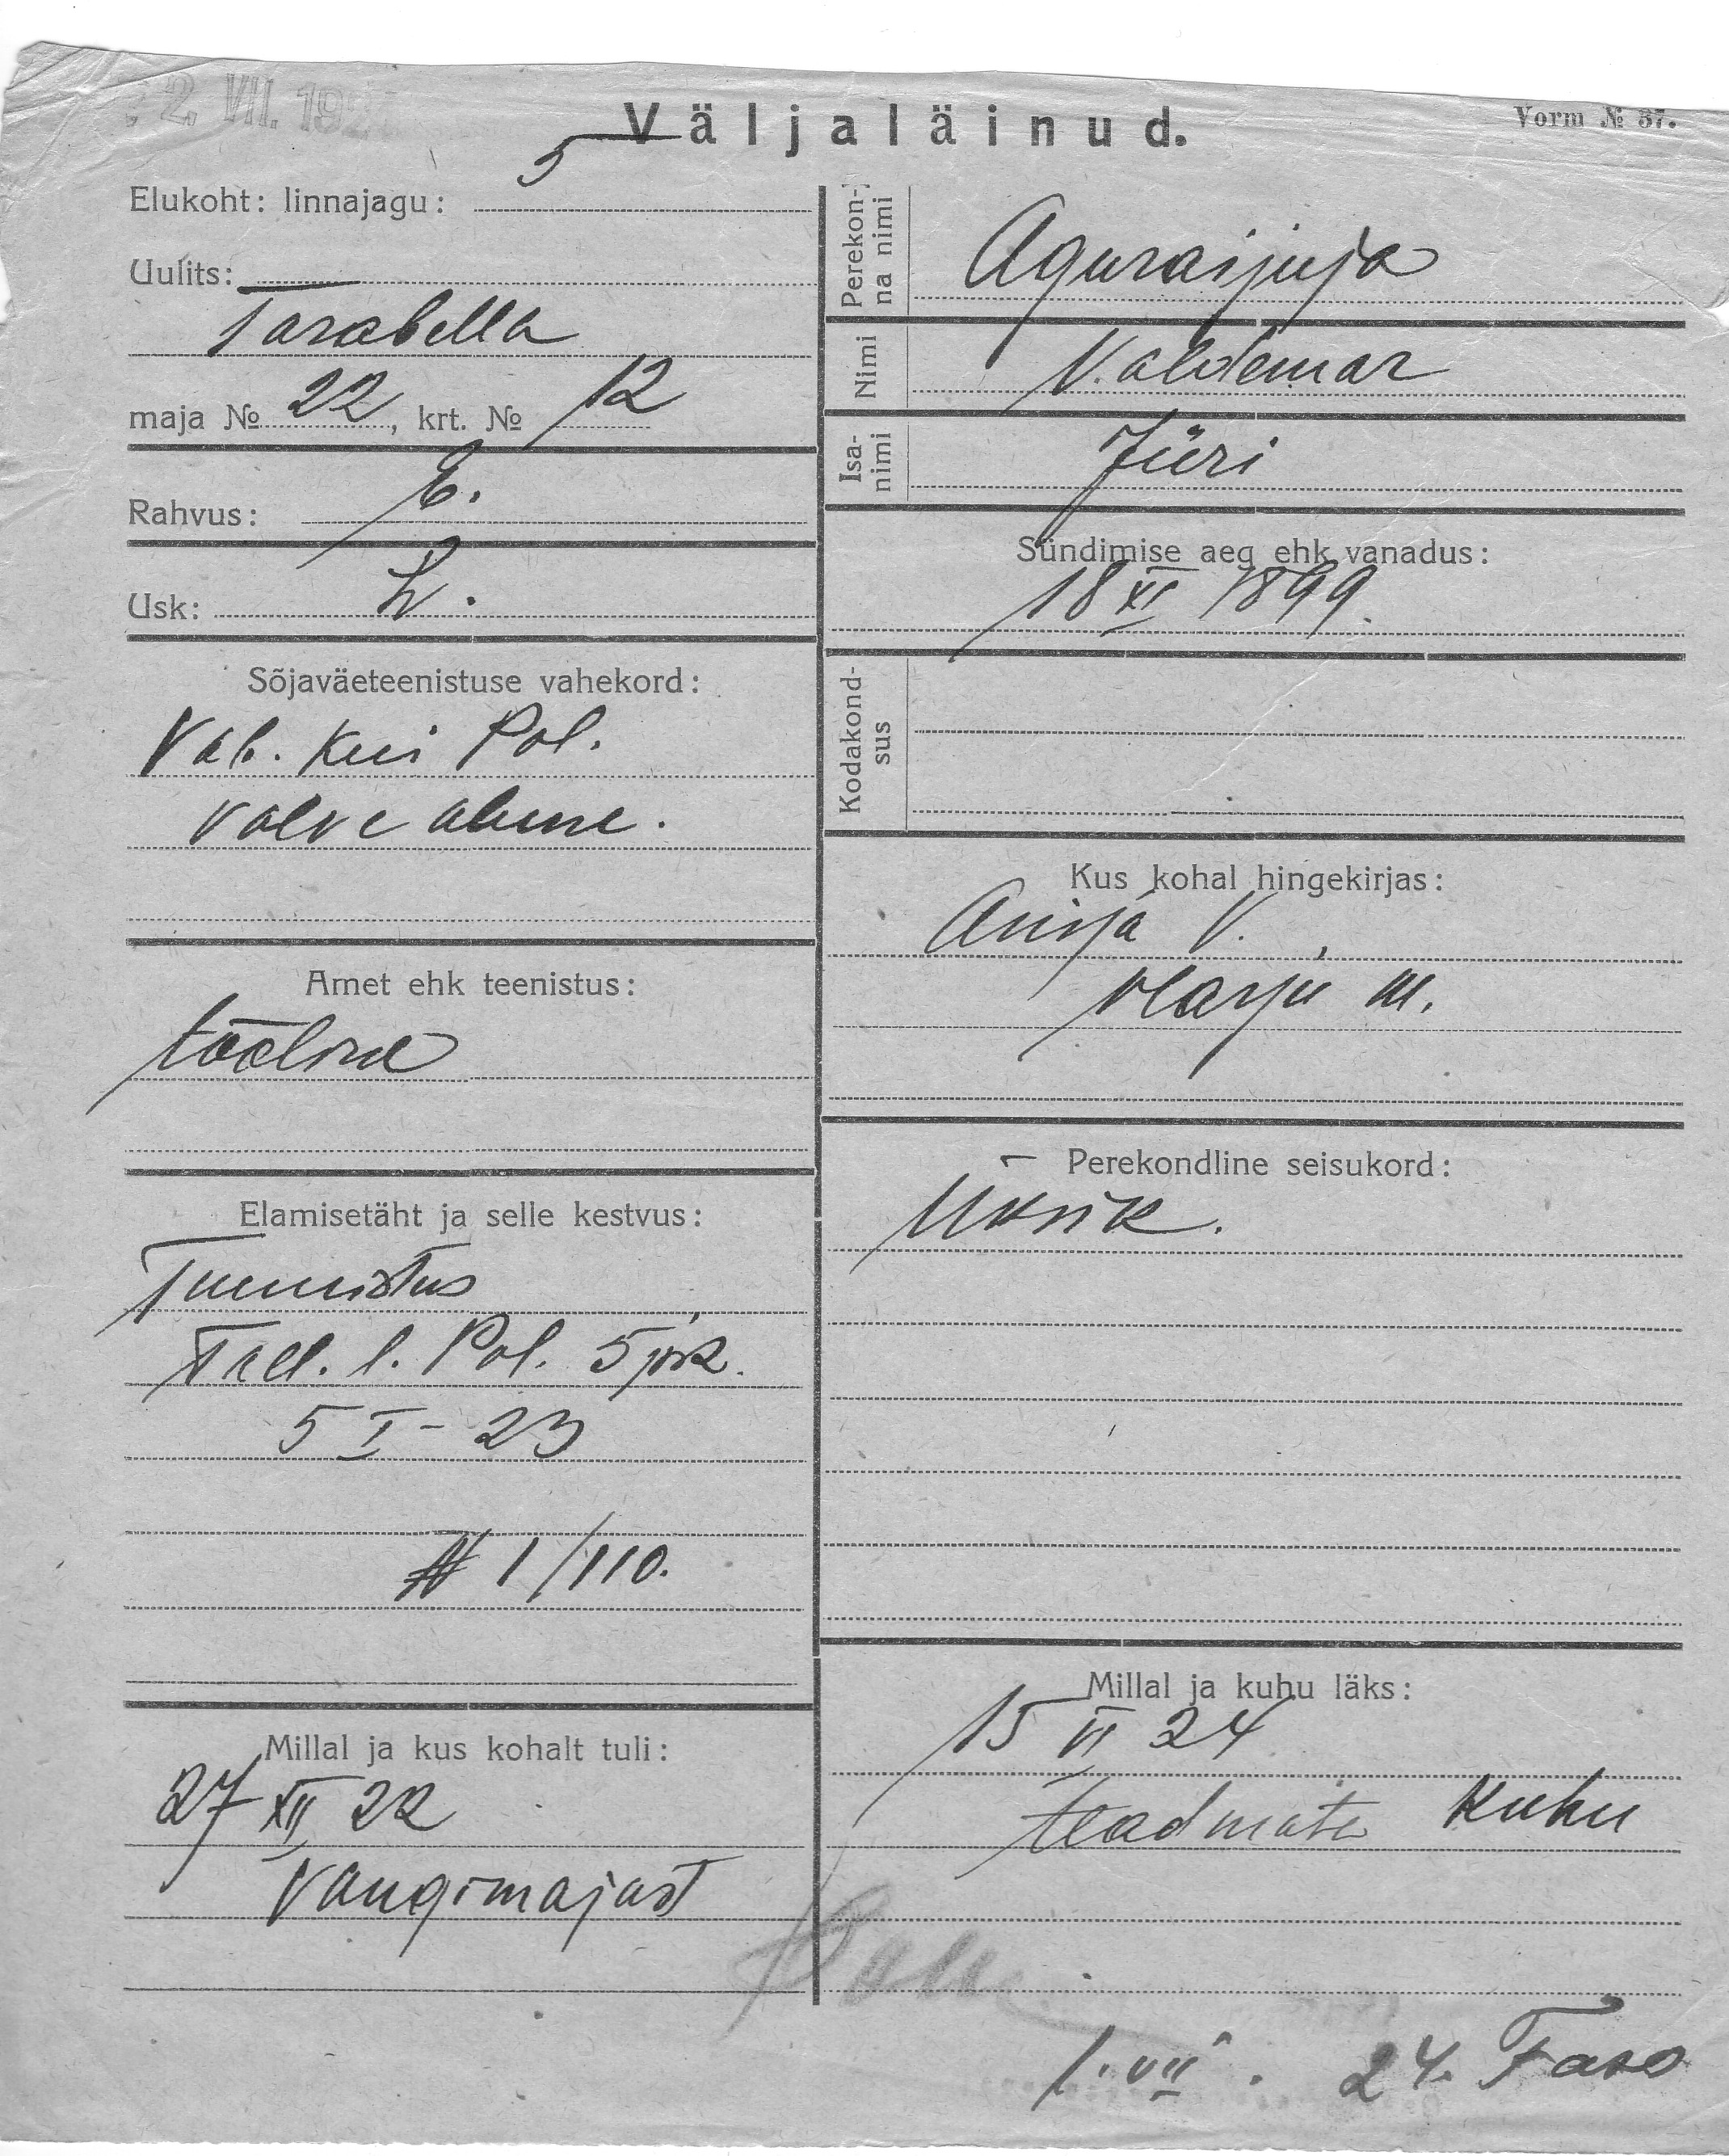 2. VII. 192
Väljaläinud.
Vorm № 37.
Elukoht: linnajagu: 5
Uulits:
Tarabella
maja № 22, krt. № 12
Rahvus: E.
Usk: L.
Sõjaväeteenistuse vahekord:
Vab. kui Pol.
valve alune.
Amet ehk teenistus:
tööline
Elamisetäht ja selle kestvus:
Tunnistus
Tall. l. Pol. 5 jsk.
5 I - 23
N 1/110.
Millal ja kus kohalt tuli:
27 XII 22
Vangimajast
Perekon-
na nimi
Aguraijuja
Nimi
Valdemar
Isa-
nimi
Jüri
Sündimise aeg ehk vanadus:
18 XI 1899.
Kodakond-
sus
Kus kohal hingekirjas:
Anija V.,
Harju m.
Perekondline seisukord:
Üksik.
Millal ja kuhu läks:
15 VI 24
teadmata kuhu
1. VII. 24.